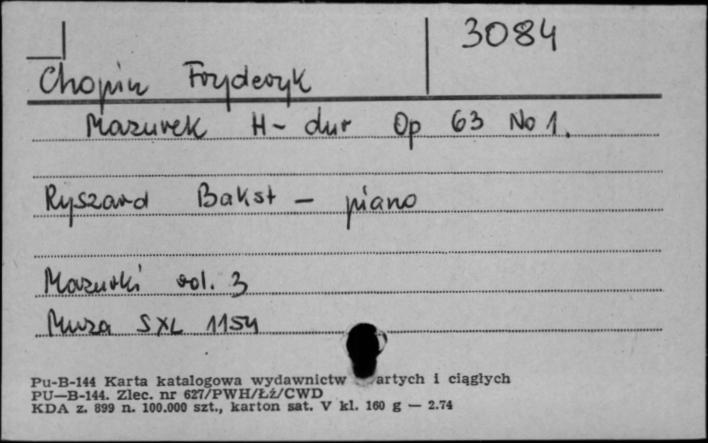 3084
Chopin Fryderyk
Mazurek H-dur Op 63 No 1.
Ryszard Bakst - piano
Mazurki vol. 3
Muza SXL 1154
Pu-B-144 Karta katalogowa wydawnictw artych i ciągłych
PU—B-144. Zlec. nr 627/PWH/Łź/CWD
KDA z. 899 n. 100.000 szt., karton sat. V kl. 160 g — 2.74